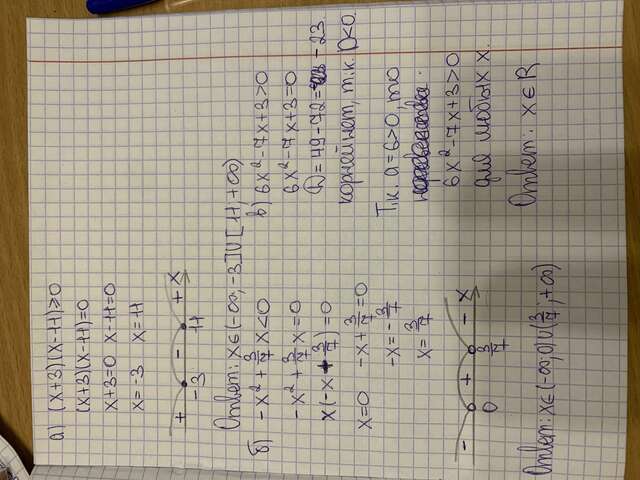 а) (x+3)(x-11)≥0
(x+3)(x-11)=0
x+3=0 x-11=0
x=-3 x=11
+ - + x
-3 11
Ответ: x∈(-∞;-3]∪[11;+∞)
б) -x²+3/4x<0
-x²+3/4x=0
x(-x+3/4)=0
x=0 -x+3/4=0
-x=-3/4
x=3/4
- + - x
0 3/4
Ответ: x∈(-∞;0)∪(3/4;+∞)
в) 6x²-7x+3>0
6x²-7x+3=0
D=49-72=-23
корней нет, т.к. D<0.
Т.к. a=6>0, то
6x²-7x+3>0
для любых x.
Ответ: x∈R